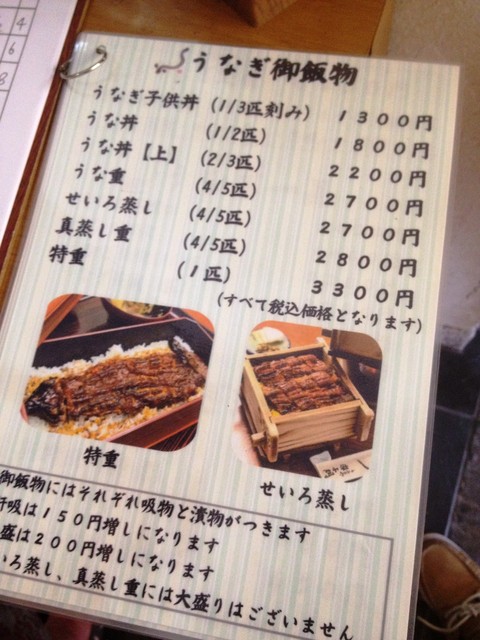 うなぎ御飯物
うなぎ子供丼 (1/3匹刻み) 1300円
うな丼 (1/2匹) 1800円
うな丼【上】 (2/3匹) 2200円
うな重 (4/5匹) 2700円
せいろ蒸し (4/5匹) 2700円
真蒸し重 (4/5匹) 2800円
特重 (1匹) 3300円
(すべて税込価格となります)
特重
せいろ蒸し
御飯物にはそれぞれ吸物と漬物がつきます
肝吸は150円増しになります
盛は200円増しになります
いろ蒸し、真蒸し重には大盛りはございません
4
6
8